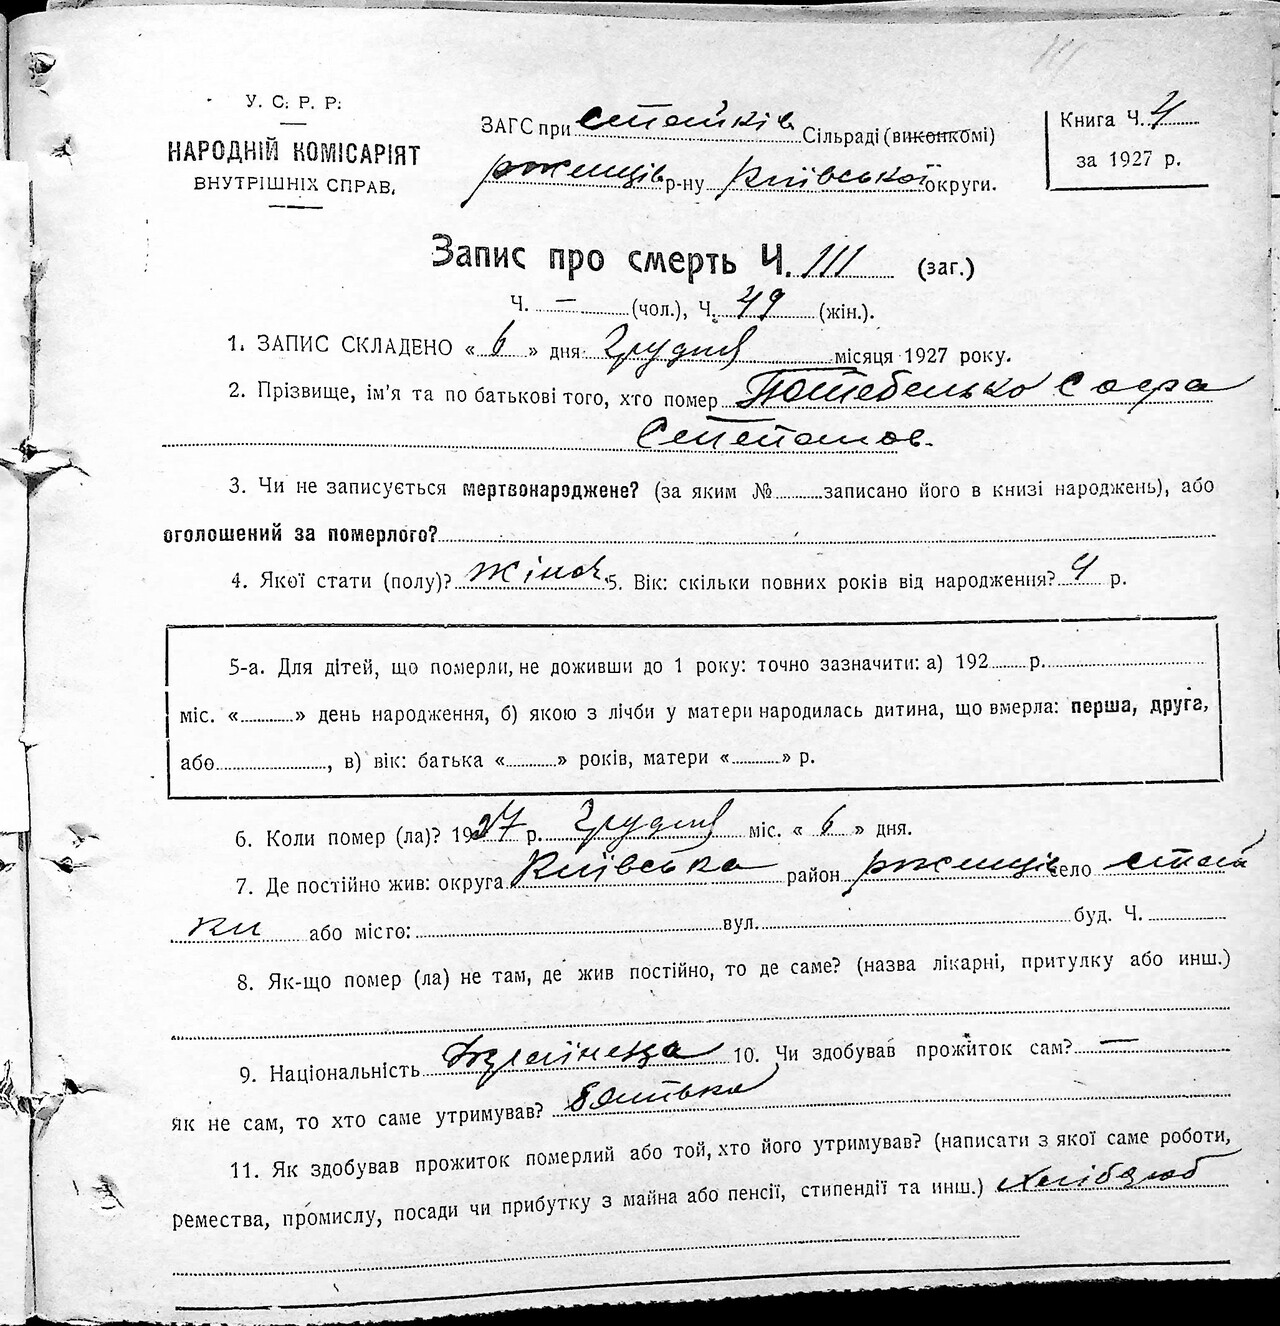 У. С. Р. Р.
НАРОДНІЙ КОМІСАРІЯТ
ВНУТРІШНІХ СПРАВ.
ЗАГС при Стайків Сільраді (виконкомі)
ржищів р-ну Київської округи.
Книга Ч. 4
за 1927 р.
Запис про смерть Ч. 111 (заг.)
Ч. — (чол.), Ч. 49 (жін.).
1. ЗАПИС СКЛАДЕНО « 6 » дня Грудня місяця 1927 року.
2. Прізвище, ім'я та по батькові того, хто помер Потебенько Софія
Степанов.
3. Чи не записується мертвонароджене? (за яким № записано його в книзі народжень), або
оголошений за померлого?
4. Якої стати (полу)? жіноч. 5. Вік: скільки повних років від народження? 4 р.
5-а. Для дітей, що померли, не доживши до 1 року: точно зазначити: а) 192 р.
міс. « » день народження, б) якою з лічби у матери народилась дитина, що вмерла: перша, друга,
або , в) вік: батька « » років, матери « » р.
6. Коли помер (ла)? 1927 р. Грудня міс. « 6 » дня.
7. Де постійно жив: округа Київська район ржищів село Стай
ки або місто: вул. буд. Ч.
8. Як-що помер (ла) не там, де жив постійно, то де саме? (назва лікарні, притулку або инш.)
9. Національність Українка 10. Чи здобував прожиток сам? —
Як не сам, то хто саме утримував? батько
11. Як здобував прожиток померлий або той, хто його утримував? (написати з якої саме роботи,
ремества, промислу, посади чи прибутку з майна або пенсії, стипендії та инш.) хлібороб